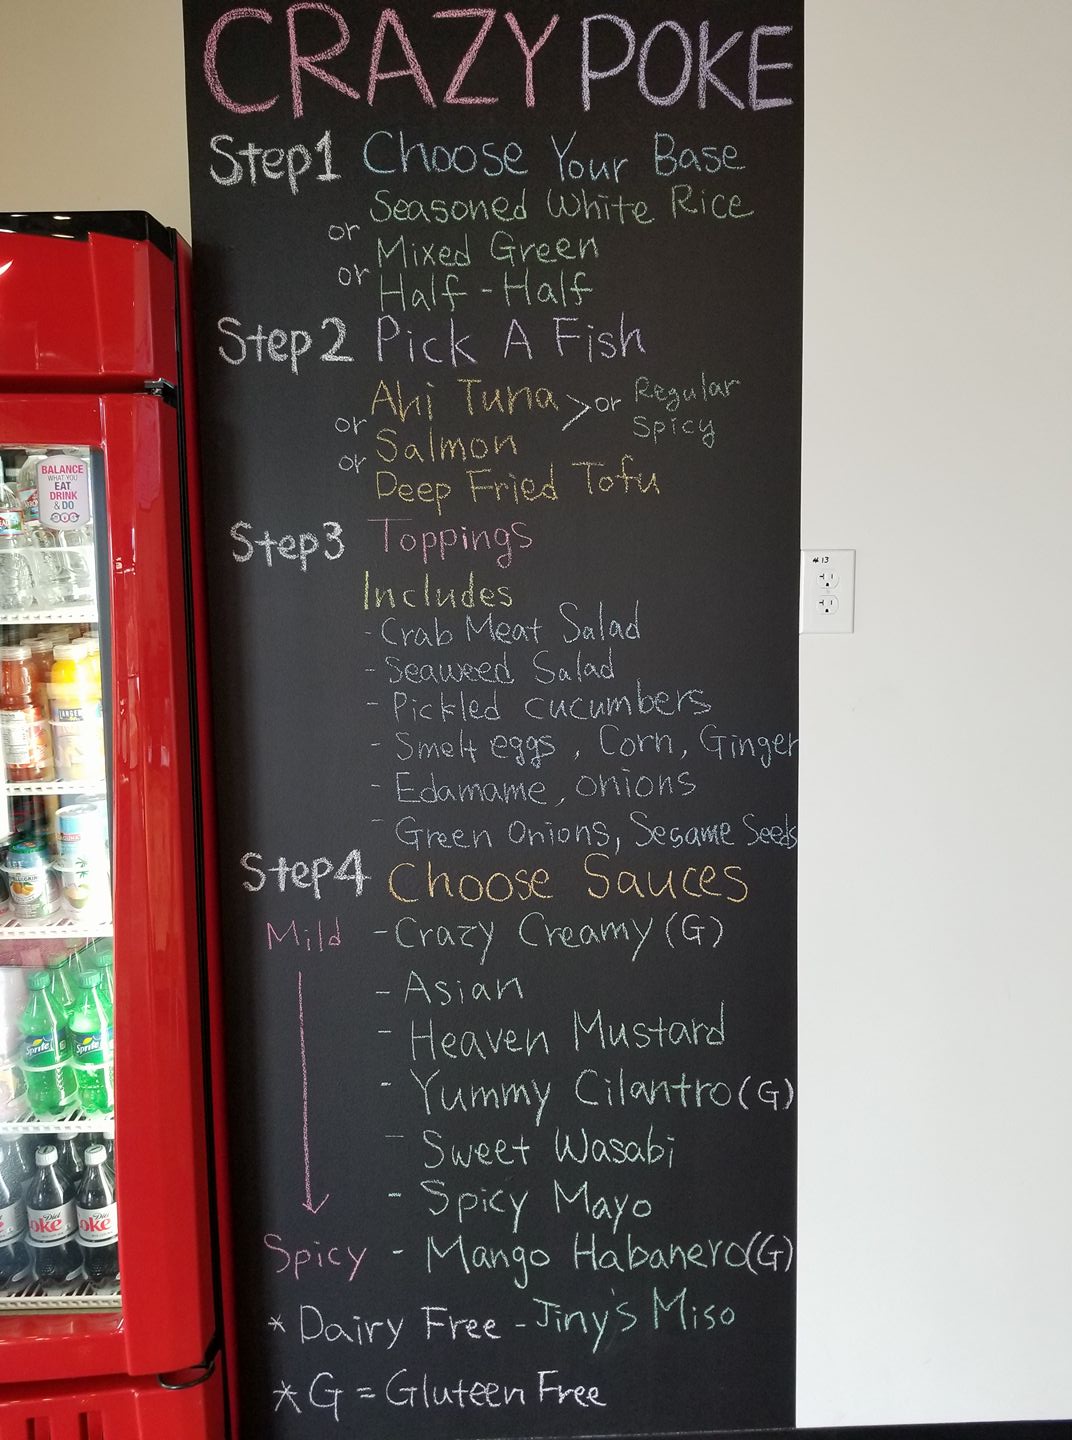 CRAZY POKE
Step1 Choose Your Base
Seasoned White Rice
or Mixed Green
or Half - Half
Step2 Pick A Fish
Ahi Tuna > or Regular
Spicy
or Salmon
or Deep Fried Tofu
Step3 Toppings
Includes
- Crab Meat Salad
- Seaweed Salad
- Pickled cucumbers
- Smelt eggs , Corn, Ginger
- Edamame, onions
- Green Onions, Sesame Seeds
Step4 Choose Sauces
Mild - Crazy Creamy (G)
- Asian
- Heaven Mustard
- Yummy Cilantro (G)
- Sweet Wasabi
- Spicy Mayo
Spicy - Mango Habanero (G)
* Dairy Free - Jiny's Miso
* G = Gluteen Free
BALANCE
WHAT YOU
EAT
DRINK
& DO
Sprite
Sprite
Diet
Coke
Diet
Coke
#13